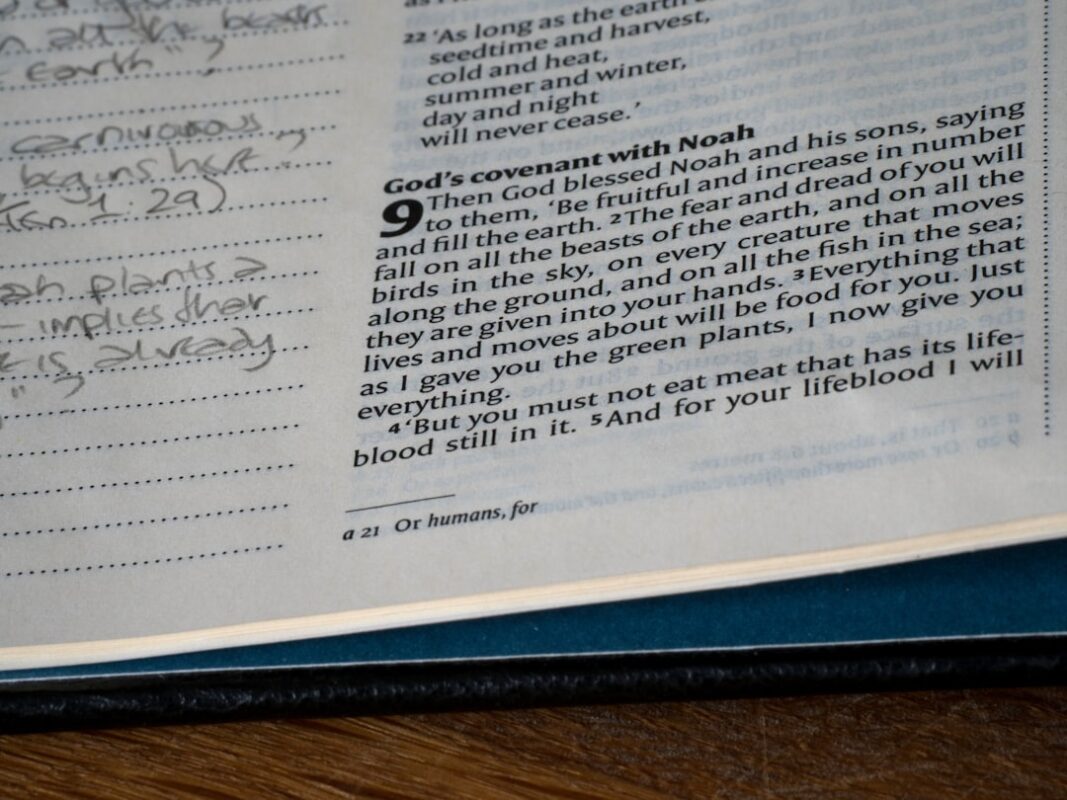 all the beasts
Earth"
carnivorous
begins here
1:29)
plants a
- implies that
is already
"
22 'As long as the earth
seedtime and harvest,
cold and heat,
summer and winter,
day and night
will never cease.'
God's covenant with Noah
9 Then God blessed Noah and his sons, saying
to them, 'Be fruitful and increase in number
and fill the earth. 2 The fear and dread of you will
fall on all the beasts of the earth, and on all the
birds in the sky, on every creature that moves
along the ground, and on all the fish in the sea;
they are given into your hands. 3 Everything that
lives and moves about will be food for you. Just
as I gave you the green plants, I now give you
everything.
4 'But you must not eat meat that has its life-
blood still in it. 5 And for your lifeblood I will
a 21 Or humans, for